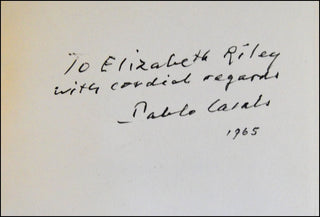 To Elizabeth Riley
with cordial regards
Pablo Casals
1965